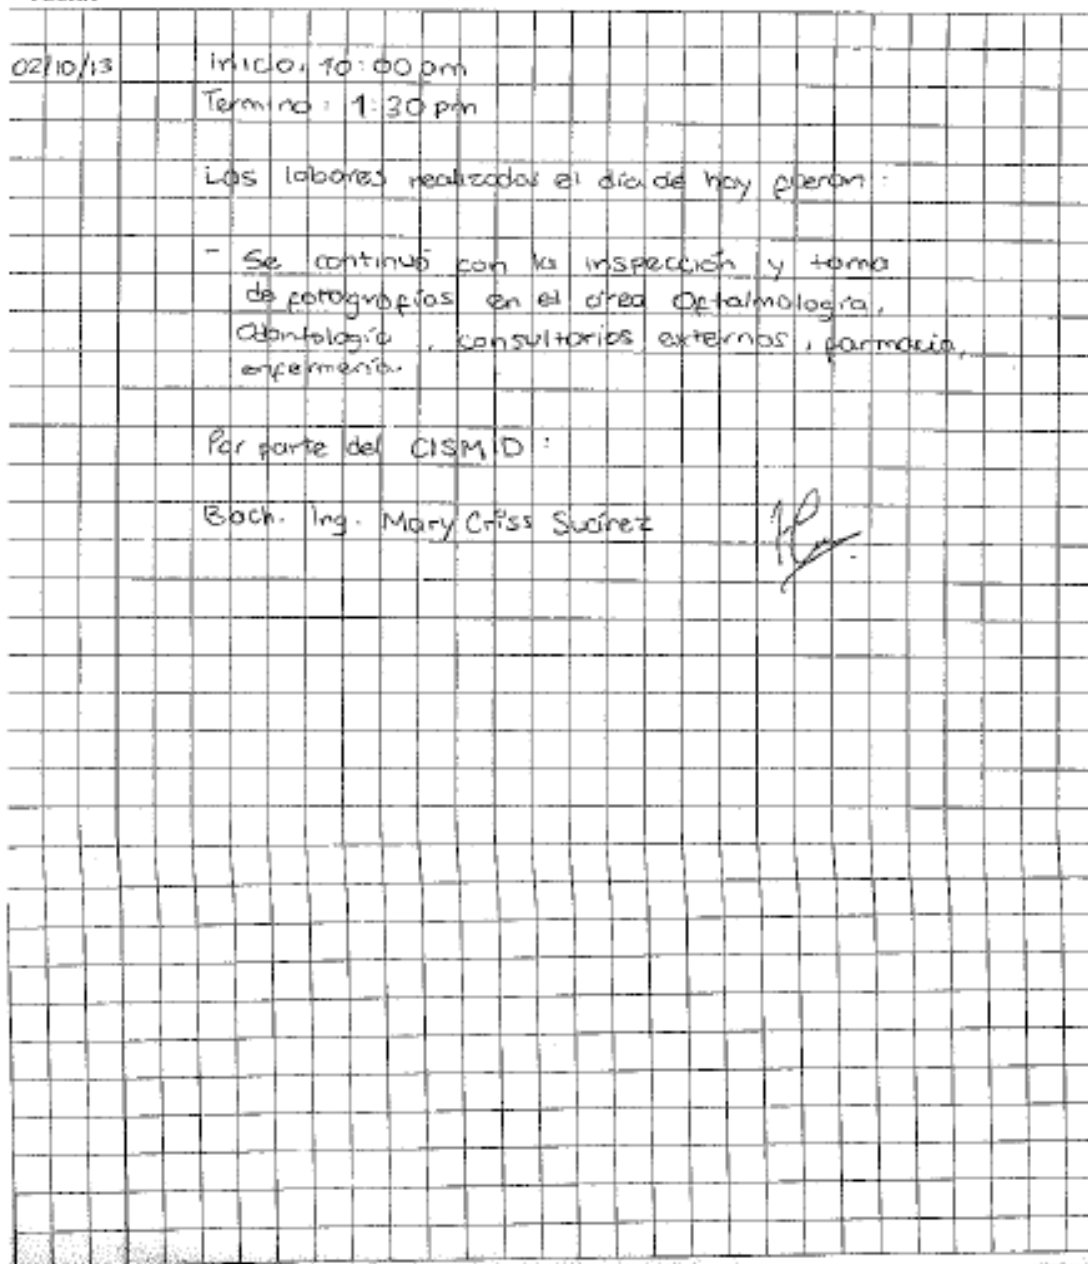 02/10/13 inicio: 10:00 pm
Termino: 1:30 pm
Las labores realizadas el día de hoy fueron:
- Se continuó con la inspección y toma
de fotografías en el área Oftalmología,
Odontología, consultorios externos, farmacia,
enfermería.
Por parte del CISMID:
Bach. Ing. Mary Criss Suárez